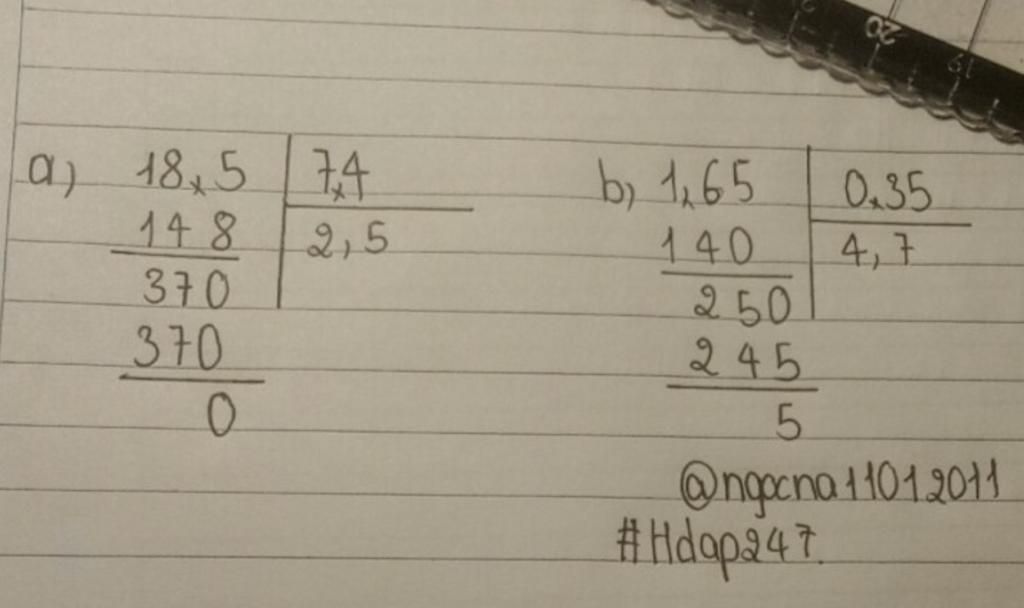 a) 18,5 | 7,4
148 | 2,5
370
370
0
b) 1,65 | 0,35
140 | 4,7
250
245
5
@ngocna11012011
#Hdap247.
20
19